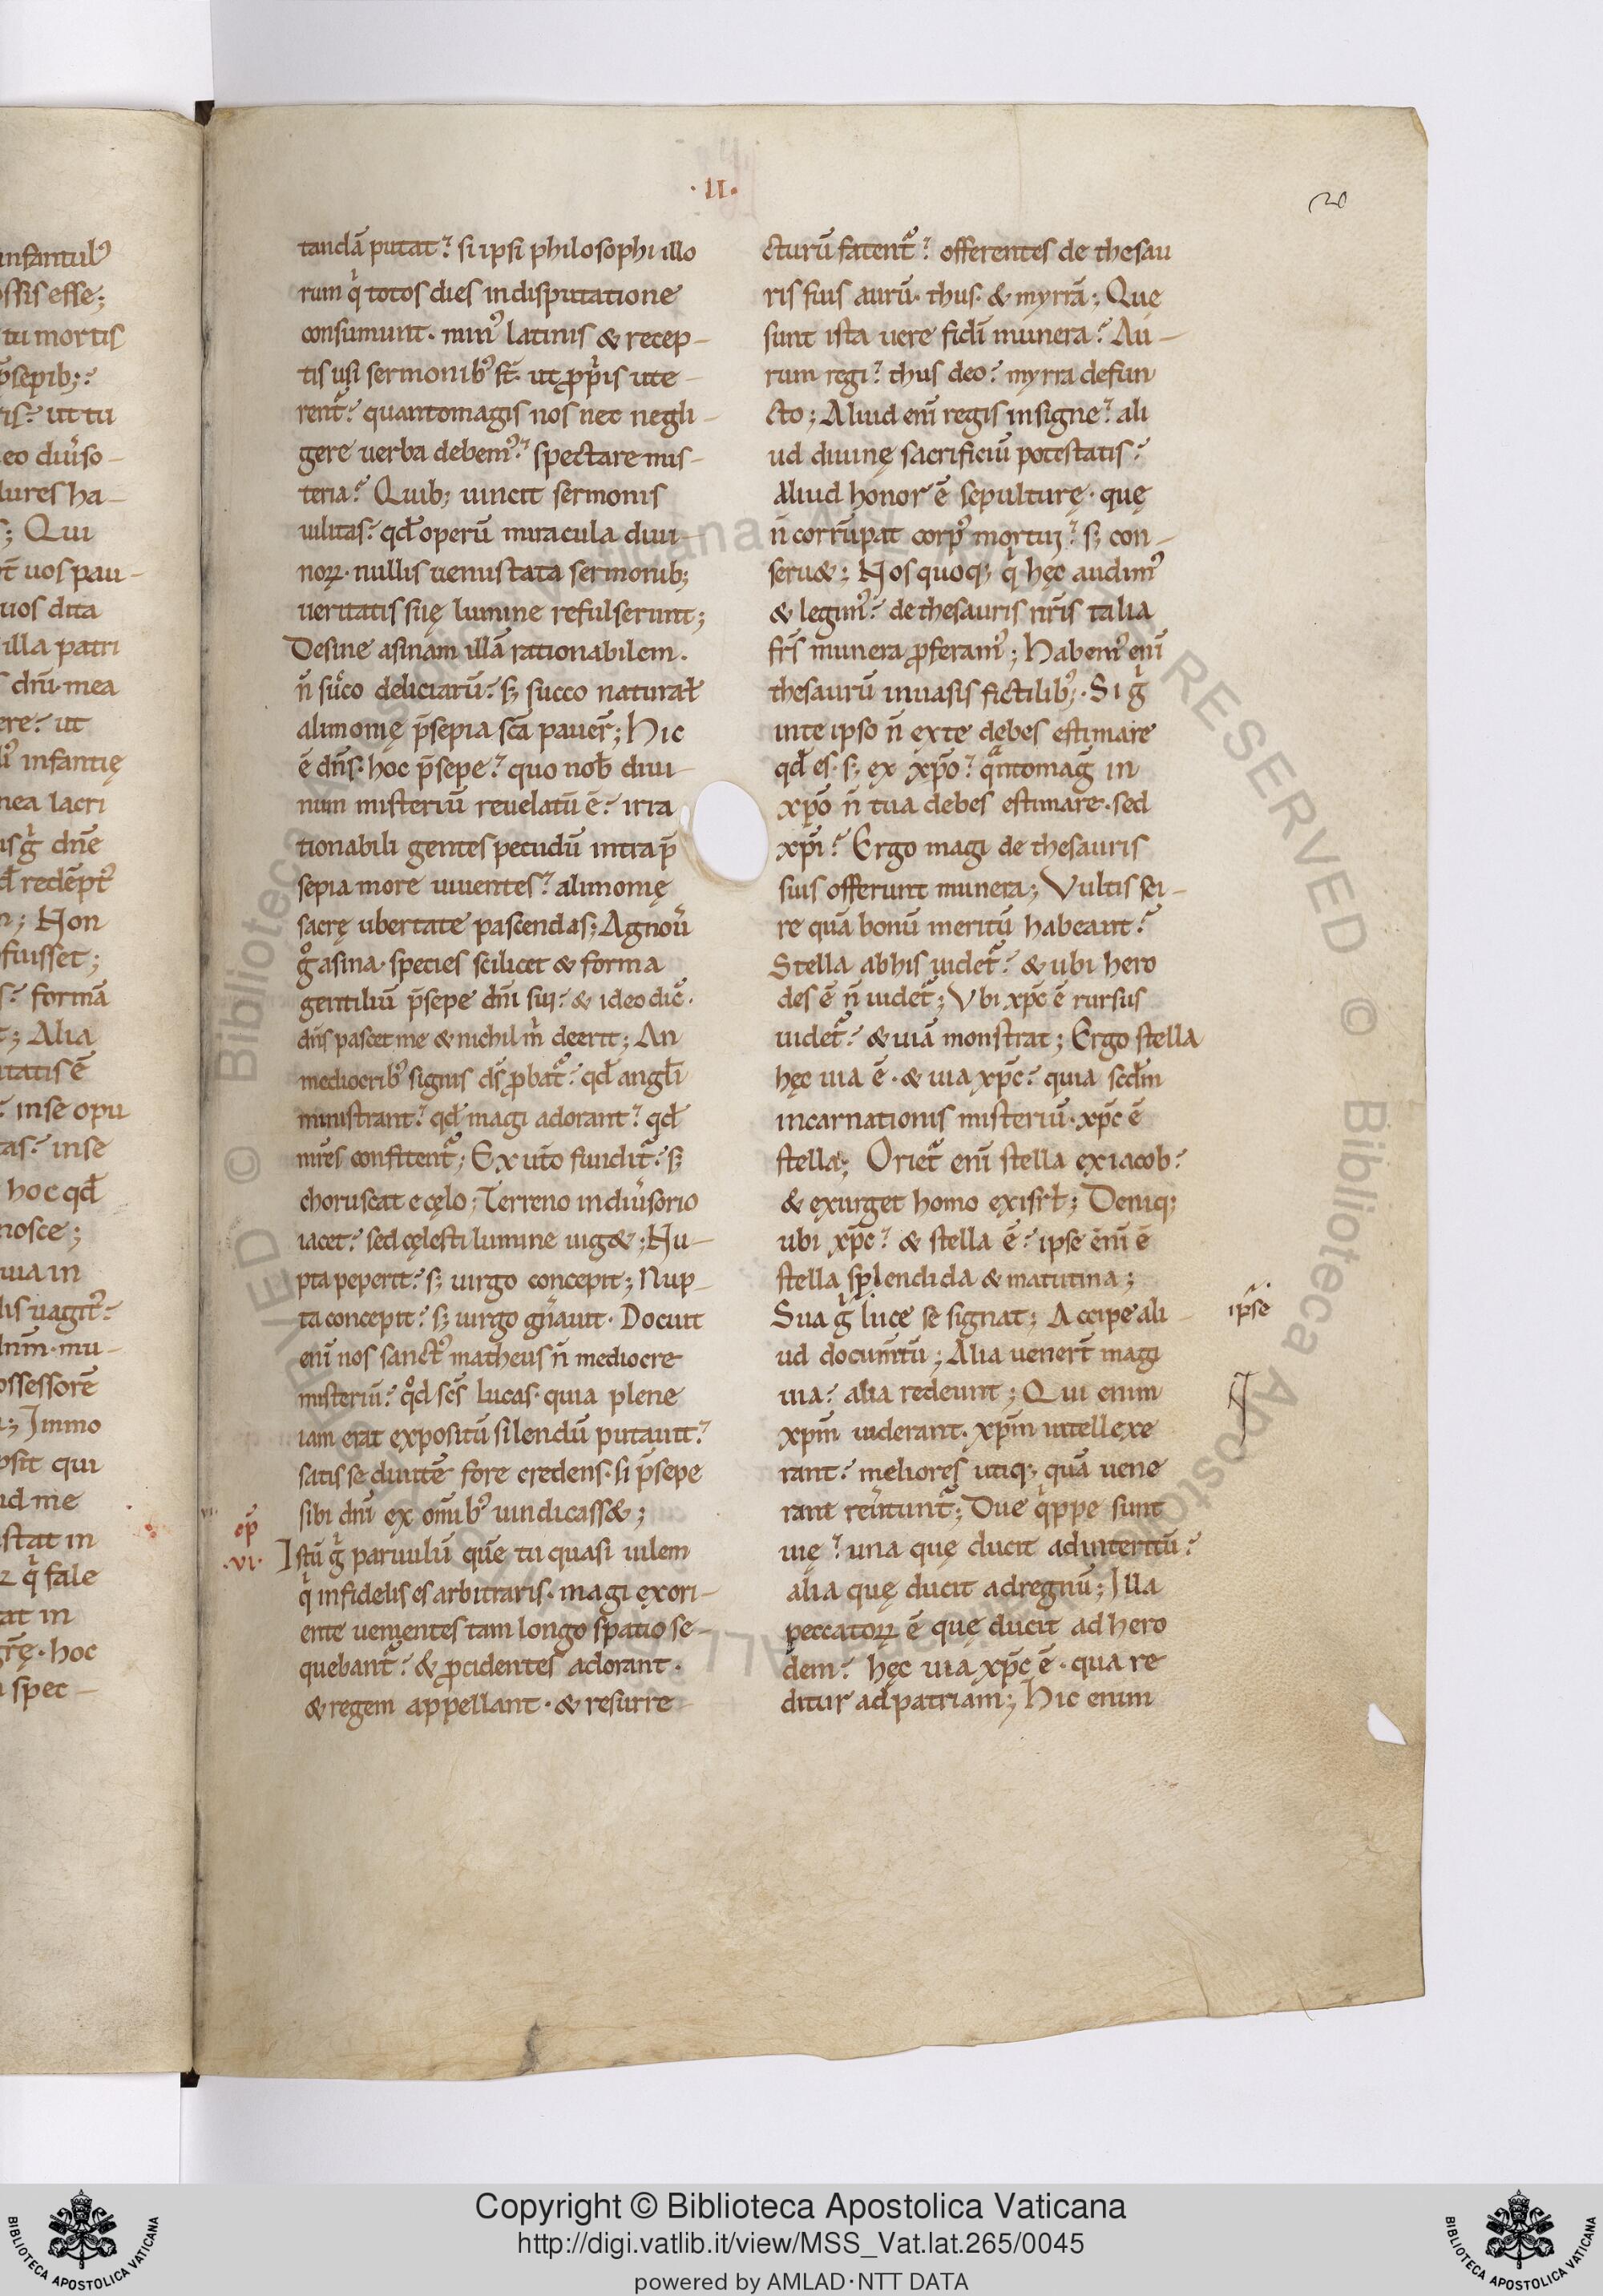 ·II·
20
infantulꝰ
ossis esse;
tu mortis
p̄sepib;:
ris? ut tu
eo diuso-
lures ha-
s; Qui
t̄ uos pau-
uos dita
illa patri
dn̄i·mea
ere? ut
infantię
mea lacri
dn̄e
đ redēptꝰ
n; Non
fuisset;
s? formā
t; Alia
itatis ē
? inse opu
tas? inse
hoc qđ
nosce;
uia in
lis uagitꝰ?
mu-
ossessorē
a; Immo
psit qui
id me
stat in
fale
at in
hoc
spec-
tandā putat? si ipsi philosophi illo
rum q̇ totos dies indisputatione
consumunt· minꝰ latinis & recep-
tis usi sermonibꝰ st̄· ut ꝓpͥis ute-
rent̄? quantomagis nos nec negli-
gere uerba debemꝰ? spectare mis-
teria? Quib; uincit sermonis
uilitas? qđ operū miracula diui-
noꝝ· nullis uenustata sermonib;
ueritatis suę lumine refulserunt;
Desine asinam illā rationabilem.
n̄ suco deliciarū? s; succo naturał
alimonię p̄sepia sc̄a pauer̄; Hic
ē dn̄s· hoc p̄sepe? quo nob̄ diui-
num misteriū reuelatū ē? irra
tionabili gentes pecudū intra p̄
sepia more uiuentes? alimonię
sacrę ubertate pascendas; Agnouͥ
gͦ asina· species scilicet & forma
gentiliū p̄sepe dn̄i sui? & ideo dic̄·
dn̄s pascet me & nichil m̄ deerit; An
mediocribꝰ signis ds̄ ꝓbat̄? qđ angłi
ministrant? qđ magi adorant? qđ
mr̄es confitent̄; Ex ut̄o fundit̄? s;
choruscat e cęlo; Terreno in diuͥsorio
iacet? sed cęlesti lumine uig&; Nu-
pta peperit? s; uirgo concepit; Nup-
ta concepit? s; uirgo gn̄auit· Docuit
enī nos sanctꝰ matheus n̄ mediocre
misteriū? qͦd sc̄s lucas· quia plene
iam erat expositū silendū putauit?
satis se diuitē fore credens· si p̄sepe
sibi dn̄i ex omībꝰ uindicass&;
ep̄
·vi·
Istū gͥ paruulū quē tu quasi uilem
qͥ infidelis es arbitraris· magi exori-
ente uenientes tam longo spatio se-
quebant̄? & ꝓcidentes adorant·
& regem appellant· & resurre-
cturū fatent̄? offerentes de thesau
ris suis aurū· thus· & myrrā; Quę
sunt ista uere fidi munera? Au-
rum regi? thus deo? myrra defun
cto; Aliud enī regis insigne? ali
ud diuinę sacrificiū potestatis?
Aliud honor ē sepulturę· quę
n̄ corrūpat corpꝰ mortui? s; con-
seru&; Nos quoq; qͥ hęc audimꝰ
& legimꝰ? de thesauris nr̄is talia
fr̄s munera ꝓferamꝰ; Habemꝰ enī
thesaurū inuasis fictilibꝰ;· Si gͥ
inte ipso n̄ ex te debes estimare
qđ es· s; ex xp̄o? qͣntomag̅ in
xp̄o n̄ tua debes estimare· sed
xp̄i? Ergo magi de thesauris
suis offerunt munera; Vultis sci-
re quā bonū meritū habeant?
Stella abhis uidet̄? & ubi hero
des ē n̄ uidet̄; Vbi xp̄c ē rursus
uidet̄? & uiā monstrat; Ergo stella
hęc uia ē· & uia xp̄c? quia scđm
incarnationis misteriū· xp̄c ē
stella; Oriet̄ enī stella ex iacob?
& exurget homo ex isrł; Deniq;
ubi xp̄c? & stella ē? ipse enī ē
stella splendida & matutina;
Sua gͥ luce se signat; Accipe ali-
ud documtū; Alia uenert̄ magi
uia? alia redeunt; Qui enim
xp̄m uiderant· xp̄m intellexe
rant? meliores utiq; quā uene
rant reuͥtunt̄; Due qͥppe sunt
uię? una quę ducit adinteritū?
alia quę ducit adregnū; Illa
peccatoꝝ ē quę ducit ad hero
dem? hęc uia xp̄c ē· qua re
ditur adpatriam; Hic enim
ip̄se
Copyright © Biblioteca Apostolica Vaticana
http://digi.vatlib.it/view/MSS_Vat.lat.265/0045
powered by AMLAD·NTT DATA
BIBLIOTECA APOSTOLICA VATICANA
BIBLIOTECA APOSTOLICA VATICANA